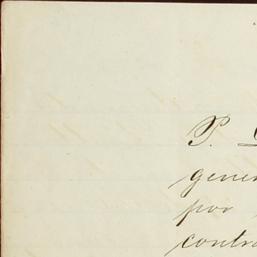 P.
gener
por
contra